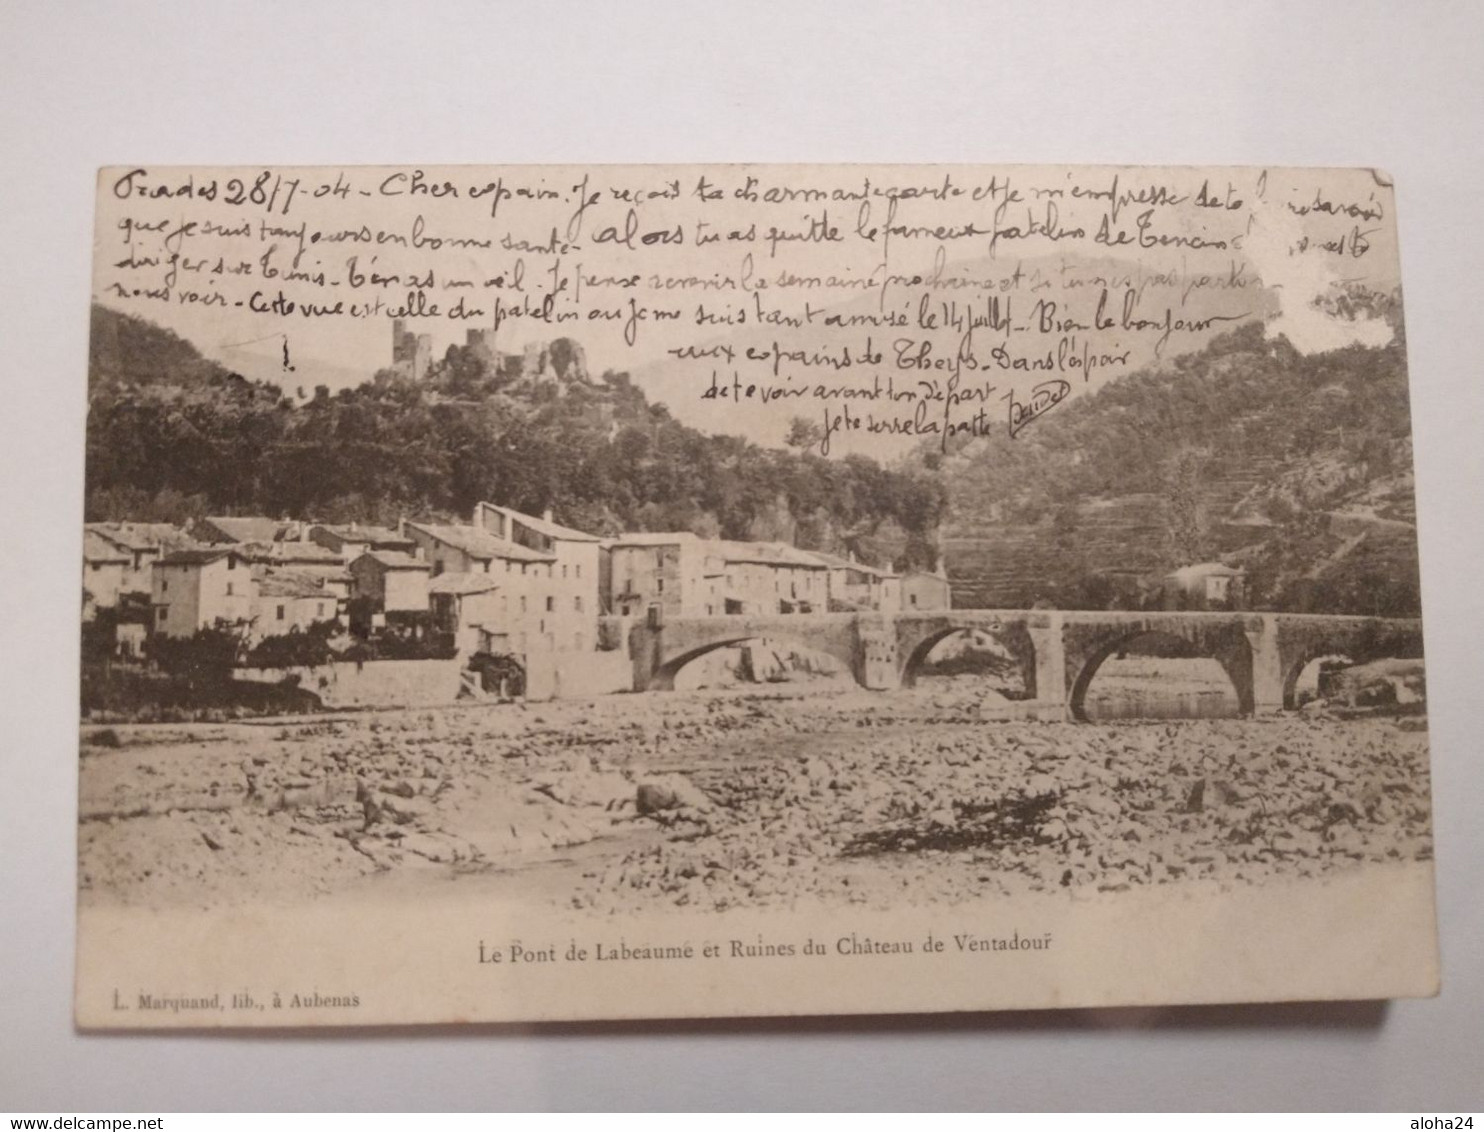 Prades 28/7-04 - Cher copain. Je reçois ta charmante carte et je m'empresse de te faire savoir
que je suis toujours en bonne santé - alors tu as quitté le fameux patelin de
diriger sur Tunis. T'en as un œil. Je pense revenir la semaine prochaine et si tu n'es pas parti
nous voir - Cette vue est celle du patelin où je me suis tant amusé le 14 juillet - Bien le bonjour
aux copains de Theys - Dans l'espoir
de te voir avant ton départ
je te serre la patte
Le Pont de Labeaume et Ruines du Château de Ventadour
L. Marquand, lib., à Aubenas
delcampe.net
aloha24